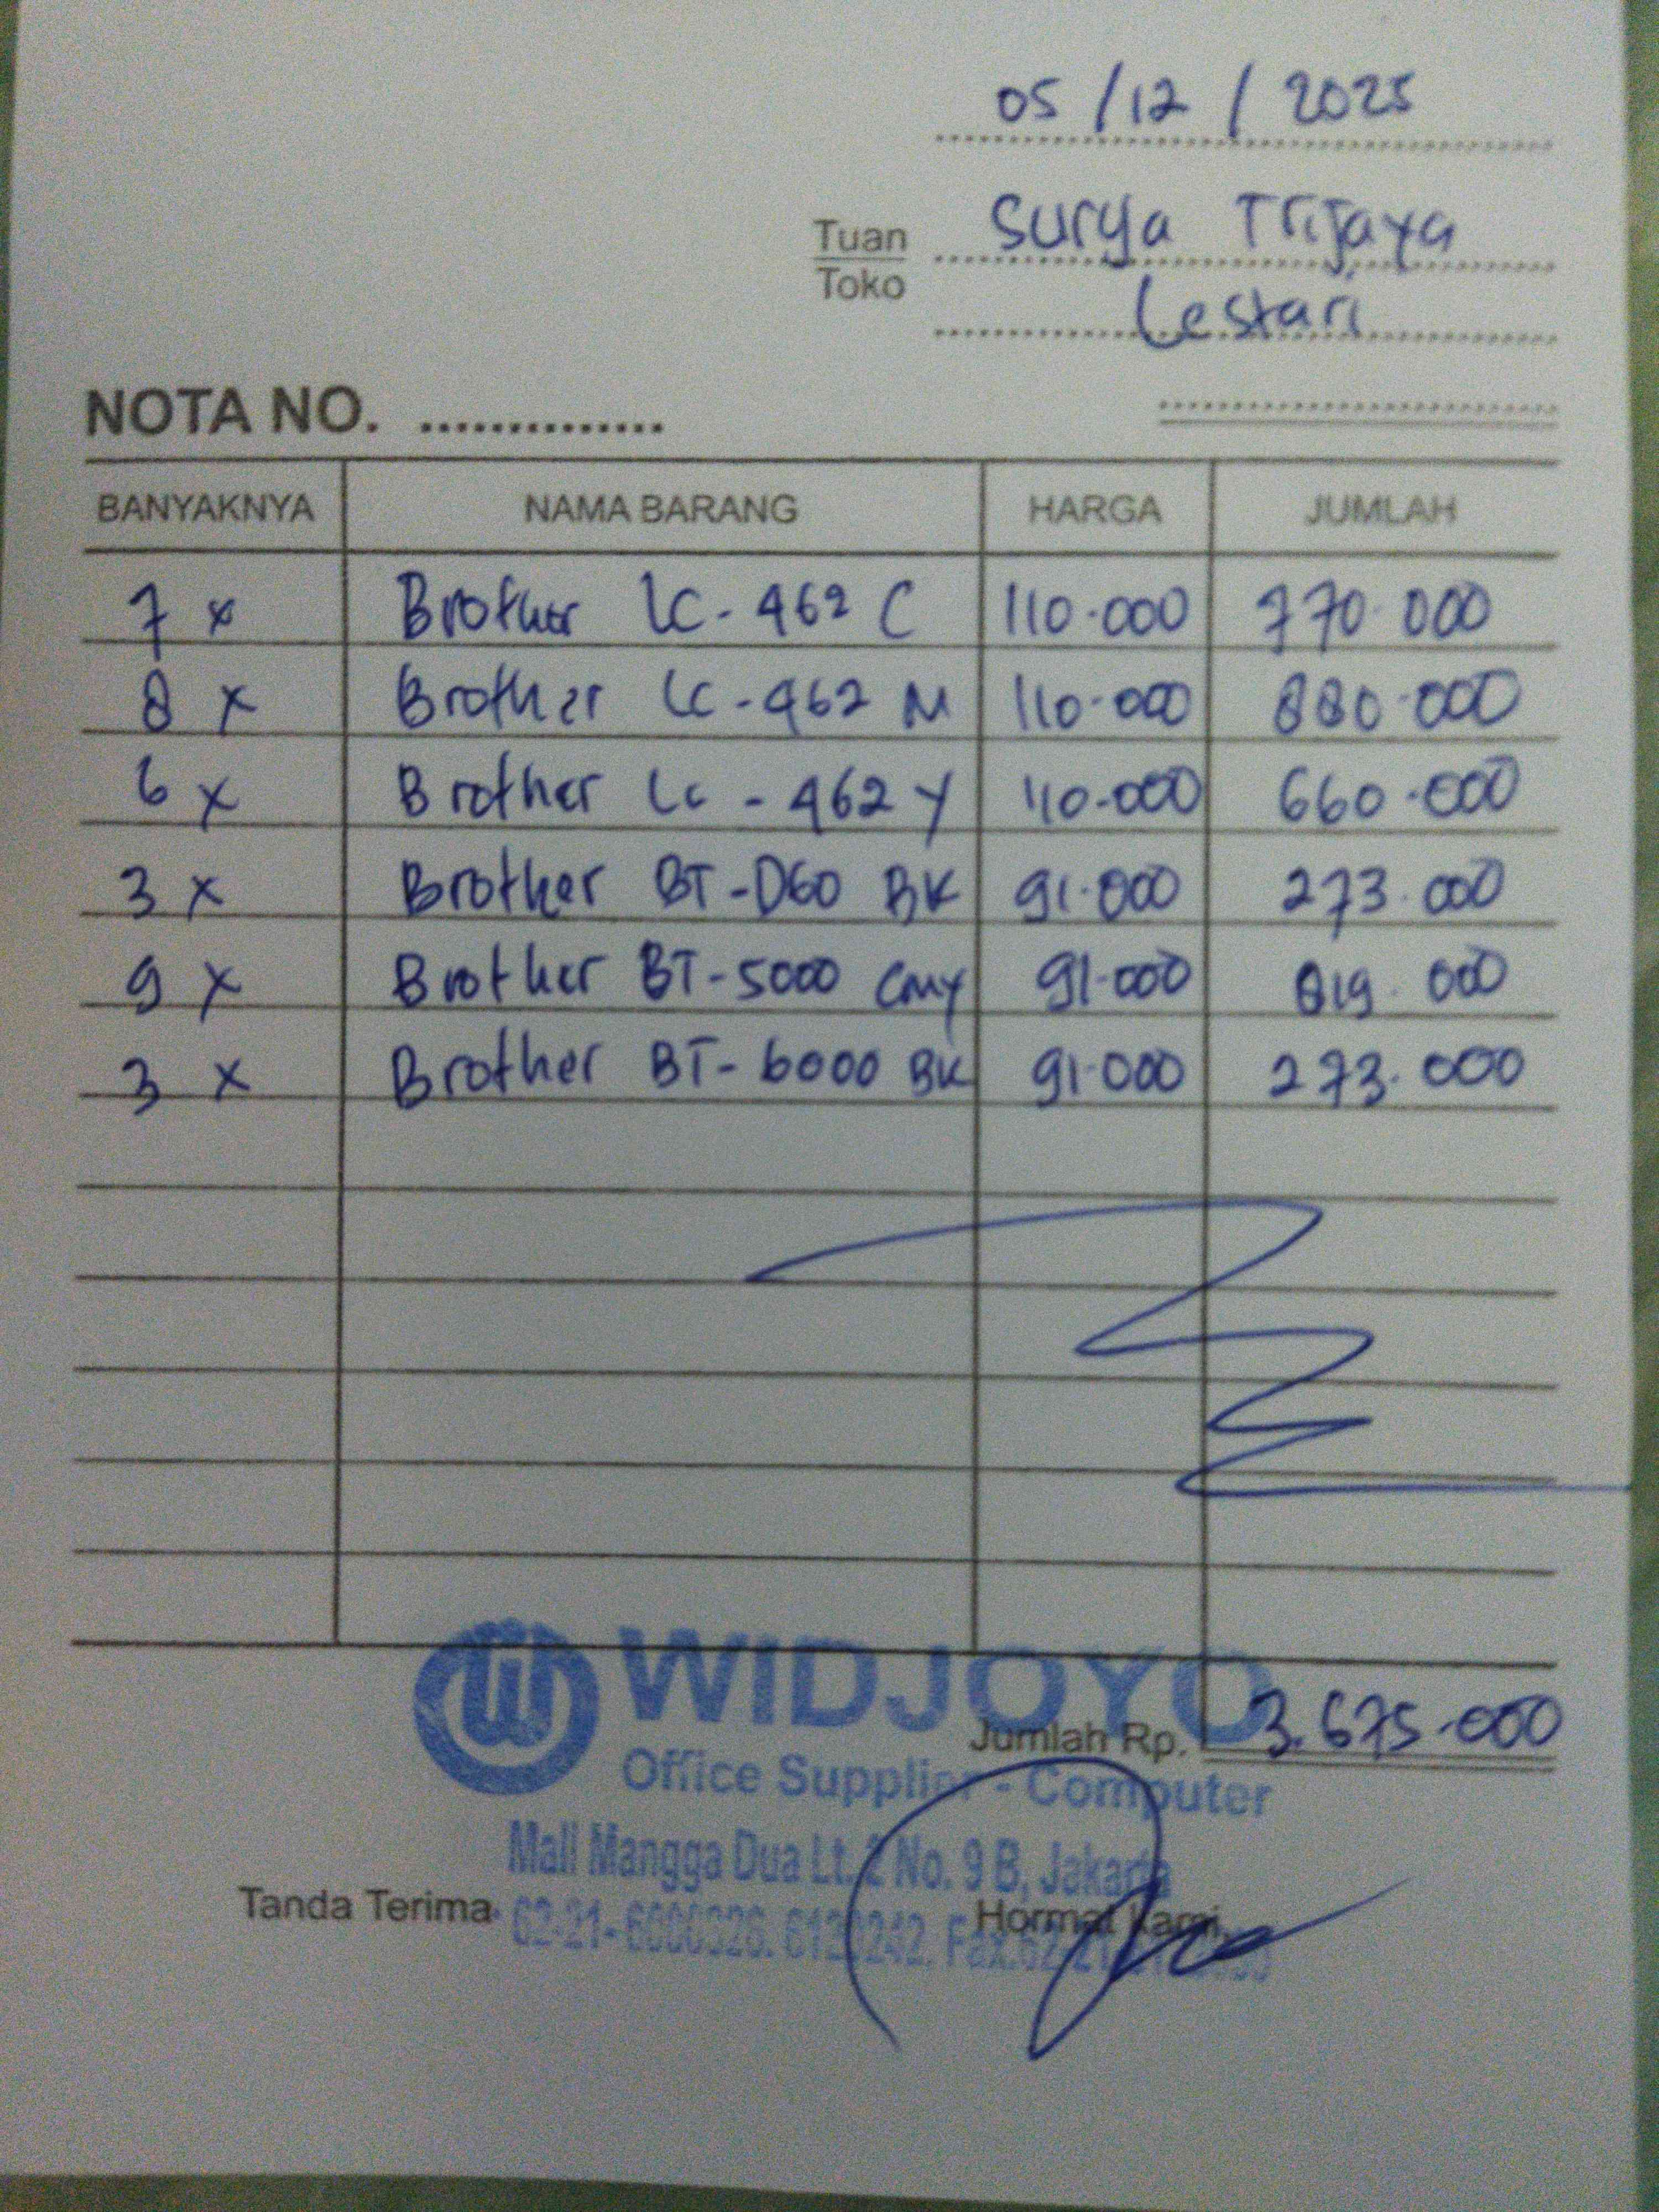 05/12/2025
Tuan Surya Trijaya
Toko Lestari
NOTA NO. ..............
BANYAKNYA NAMA BARANG HARGA JUMLAH
7 x Brother LC-462 C 110.000 770.000
8 x Brother LC-462 M 110.000 880.000
6 x Brother LC-462 Y 110.000 660.000
3 x Brother BT-D60 BK 91.000 273.000
9 x Brother BT-5000 CMY 91.000 819.000
3 x Brother BT-6000 BK 91.000 273.000
WIDJOYO
Jumlah Rp. 3.675.000
Office Supplier - Computer
Mall Mangga Dua Lt. 2 No. 9 B, Jakarta
Tanda Terima Hormat Kami,
Fax.